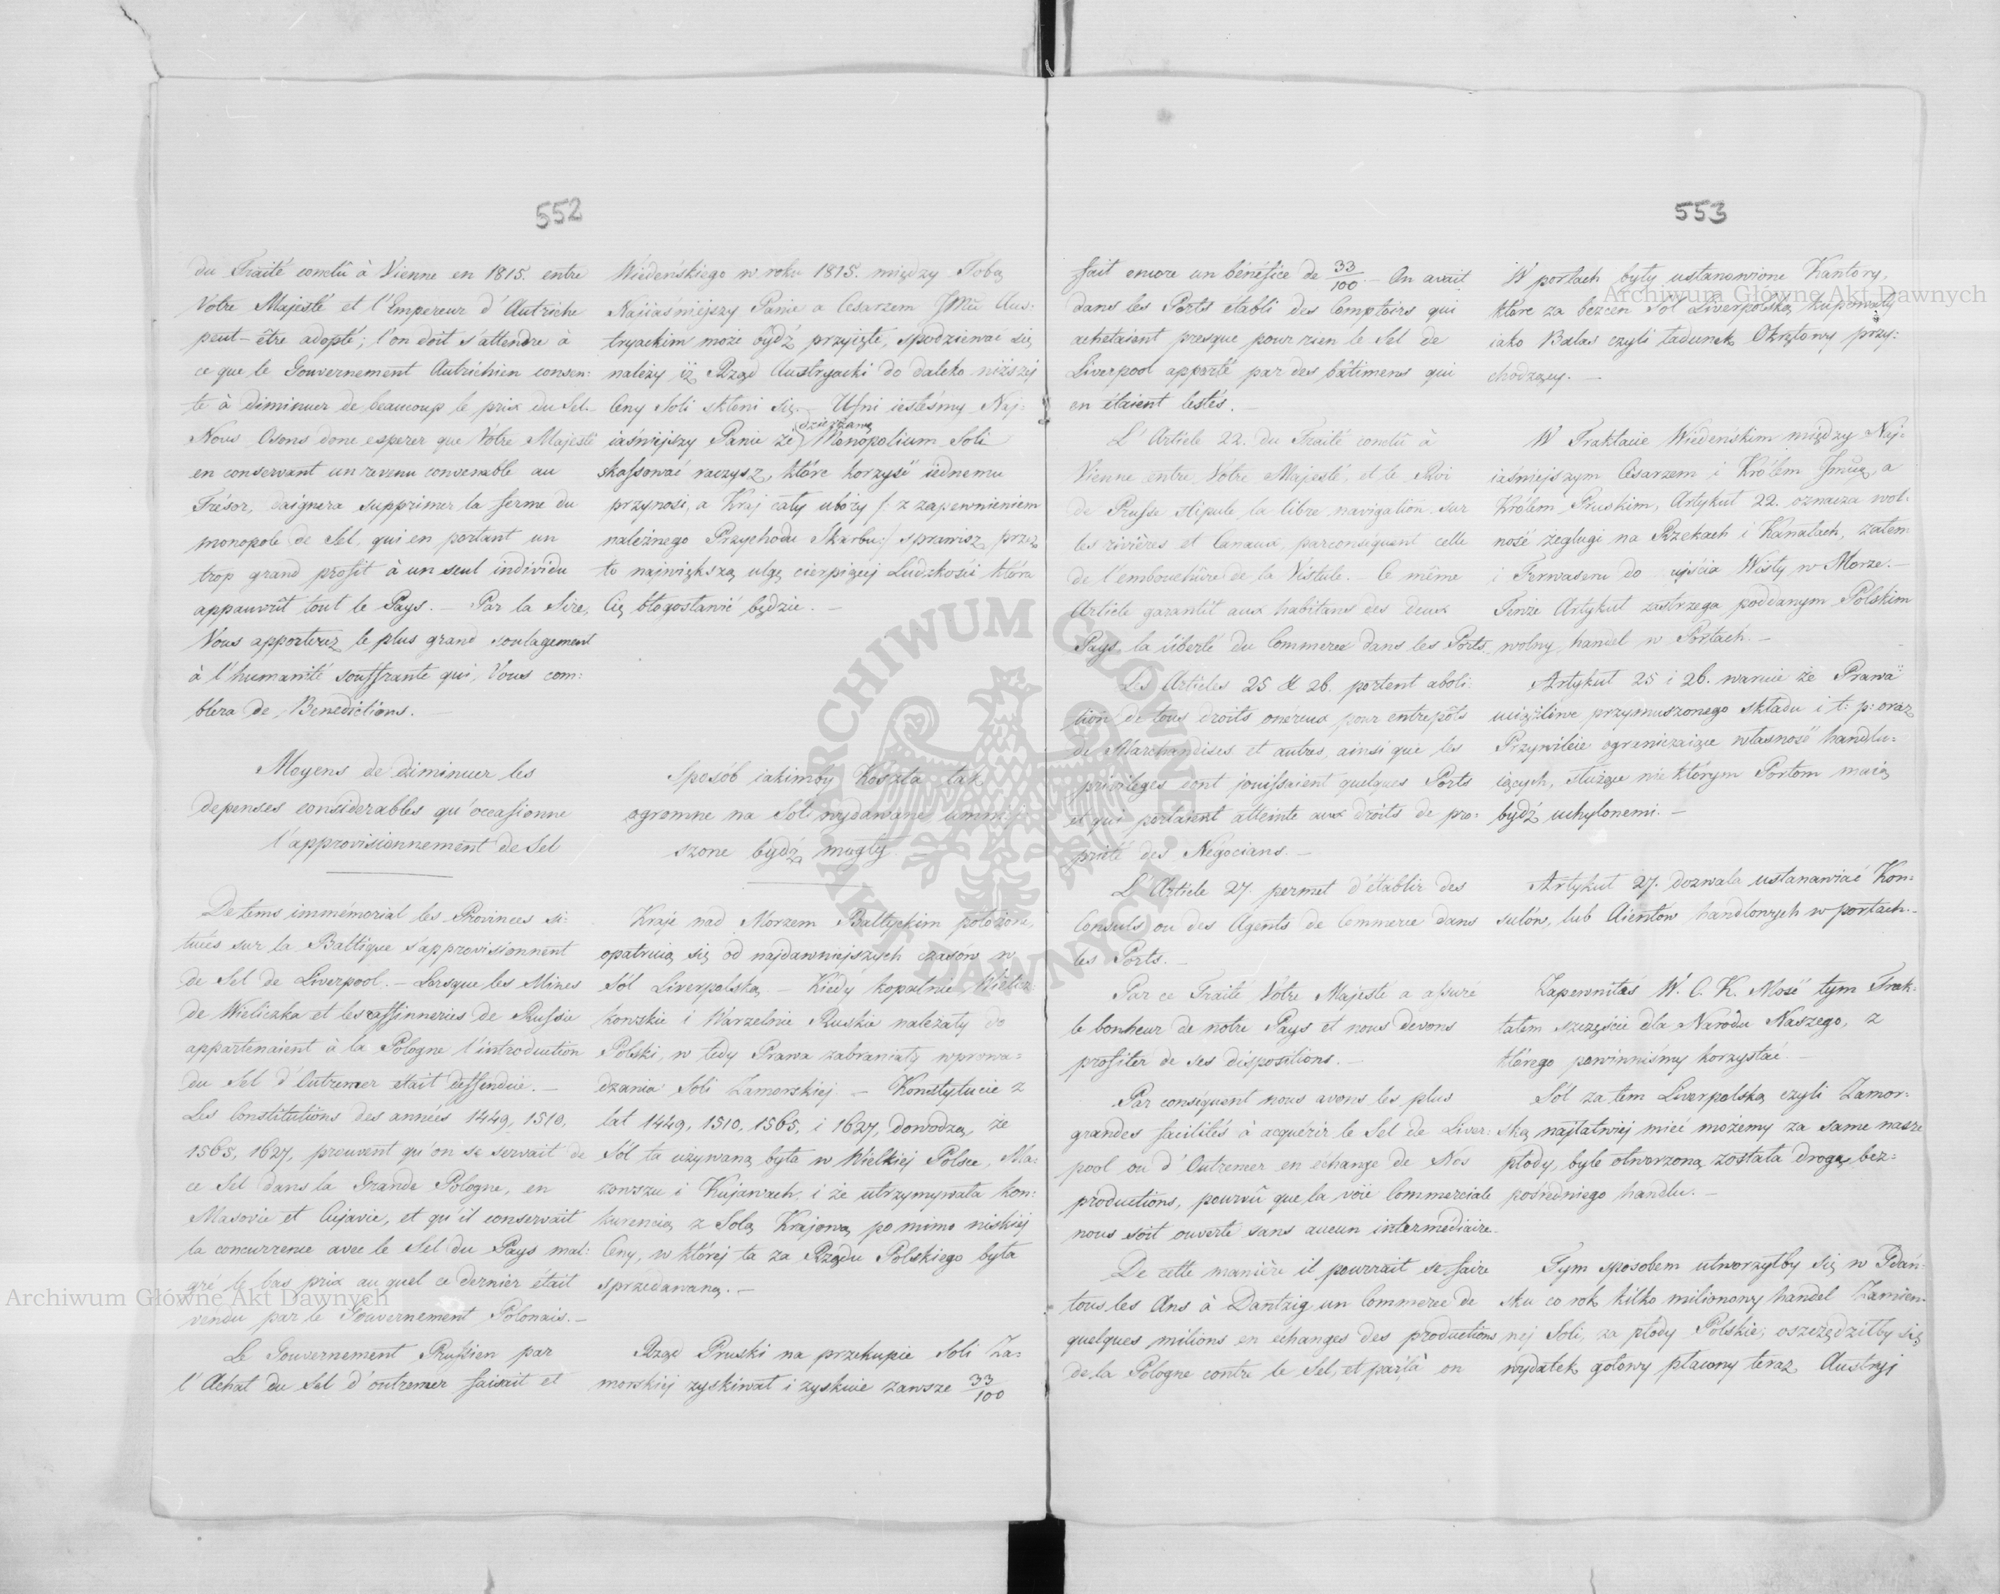 552
du Traité conclû à Vienne en 1815. entre
Votre Majesté et l'Empereur d'Autriche
peut-être adopté; l'on doit s'attendre à
ce que le Gouvernement Autrichien consen:
te à diminuer de beaucoup le prix du Sel.
Nous Osons donc esperer que Vôtre Majesté
en conservant un revenu convenable au
Trésor, daignera supprimer la ferme du
monopole de Sel, qui en portant un
trop grand profit à un seul individu
appauvrit tout le Pays. — Par la Sire,
Vous apporterez le plus grand soulagement
à l'humanité souffrante qui, Vous com:
blera de Benedictions. —
Moyens de diminuer les
depenses considerables qu'occasionne
l'approvisionnement de Sel
De tems immémorial les Provinces si:
tuées sur la Baltique s'approvisionnent
de Sel de Liverpool. — Lorsque les Mines
de Wieliczka et les raffinneries de Russie
appartenaient à la Pologne l'introduction
du Sel d'Outremer etait deffendüe. —
Les Constitutions des années 1449, 1510,
1565, 1627, preuvent qu'on se servait de
ce Sel dans la Grande Pologne, en
Masovie et Cujavie, et qu'il conservait
la concurrence avec le Sel du Pays mal:
gré le bas prix au quel ce dernier était
vendu par le Gouvernement Polonais. —
Le Gouvernement Prussien par
l'Achat du Sel d'outremer faisait et
Wiedeńskiego w roku 1815. między Tobą
Naiiaśniejszy Panie a Cesarzem Jmcią Aus:
tryackim może bydź przyięte, spodziewać się
należy iż Rząd Austryacki do daleko niższéj
Ceny Soli skłoni się. — Ufni iesteśmy Naj:
iaśniejszy Panie że (dzierżawę) Monopolium Soli
skassować raczysz, które korzyść iednemu
przynosi, a Kraj cały uboży /: z zapewnieniem
należnego Przychodu Skarbu:/ sprawisz przez
to największą ulgę cierpiącej Ludzkości która
Cię błogosławić będzie. —
Sposób iakimby Koszta tak
ogromne na Sól wydawane zmniej
szone bydź mogły
Kraje nad Morzem Baltyckim położone,
opatruią się od najdawniejszych czasów w
Sól Liverpolską — Kiedy kopalnie Wielic:
kowskie i Warzelnie Ruskie należały do
Polski, w tedy Prawa zabraniały wprowa:
dzania Soli Zamorskiej. — Konstytucie z
lat 1449, 1510, 1565, i 1627, dowodzą że
Sól ta używaną była w Wielkiej Polsce, Ma:
zowszu i Kujawach, i że utrzymywała kon:
kurencią z Solą Krajową po mimo niskiej
Ceny, w której ta za Rządu Polskiego była
sprzedawaną. —
Rząd Pruski na przekupie Soli Za:
morskiej zyskiwał i zyskuie zawsze 33/100
553
fait encore un bénéfice de 33/100. — On avait
dans les Ports établi des Comptoirs qui
achetaient presque pour rien le Sel de
Liverpool apporté par des bâtimens qui
en étaient lestés. —
L'Article 22. du Traité conclû à
Vienne entre Vôtre Majesté, et le Roi
de Prusse stipule la libre navigation sur
les rivières et Canaux, parconséquent celle
de l'embouchûre de la Vistule. — Ce même
Article garantit aux habitans des deux
Pays la liberté du Commerce dans les Ports.
Les Articles 25 & 26. portent aboli:
tion de tous droits onéreux pour entrepôts
de Marchandises et autres, ainsi que les
privilèges dont jouissaient quelques Ports
et qui portaient atteinte aux droits de pro:
prieté des Négocians. —
L'Article 27. permet d'établir des
Consuls ou des Agents de Commerce dans
les Ports. —
Par ce Traité Votre Majesté a assuré
le bonheur de notre Pays et nous devons
profiter de ses dispositions. —
Par conséquent nous avons les plus
grandes facilités à acquérir le Sel de Liver:
pool ou d'Outremer en échange de Nos
productions, pourvû que la voïe Commerciale
nous soit ouverte sans aucun intermédiaire.
De cette manière il pourrait se faire
tous les Ans à Dantzig un Commerce de
quelques milions en echanges des productions
de la Pologne contre le Sel, et par là on
W portach były ustanowione Kantory,
które za bezcen Sól Liverpolską kupowały
iako Balas czyli ładunek Okrętowy przy:
chodzący. —
W Traktacie Wiedeńskim między Naj:
iaśniejszym Cesarzem i Królem Jmcią, a
Królem Pruskim, Artykuł 22. oznacza wol:
ność żeglugi na Rzekach i Kanałach, zatem
i Ferwaseru do ujścia Wisły w Morze. —
Tenże Artykuł zastrzega poddanym Polskim
wolny handel w Portach. —
Artykuł 25 i 26. waruie że Prawa
uciążliwe przymuszonego składu i t: p: oraz
Przywileie ograniczaiące własność handlu:
iących, służące nie którym Portom maią
bydź uchylonemi. —
Artykuł 27. dozwala ustanawiać Kon:
sulów, lub Aientów handlowych w portach. —
Zapewniłaś W. C. K. Mość tym Trak:
tatem szczęście dla Narodu Naszego, z
którego powinniśmy korzystać —
Sól zatem Liverpolską czyli Zamor:
ską najłatwiej mieć możemy za same nasze
płody, byle otworzoną została droga bez:
pośredniego handlu. —
Tym sposobem utworzyłby się w Gdań:
sku co rok kilko milionowy handel Zamien:
nej Soli, za płody Polskie; oszczędziłby się
wydatek gotowy płacony teraz Austryj
Archiwum Główne Akt Dawnych
Archiwum Główne Akt Dawnych
ARCHIWUM GŁÓWNE AKT DAWNYCH